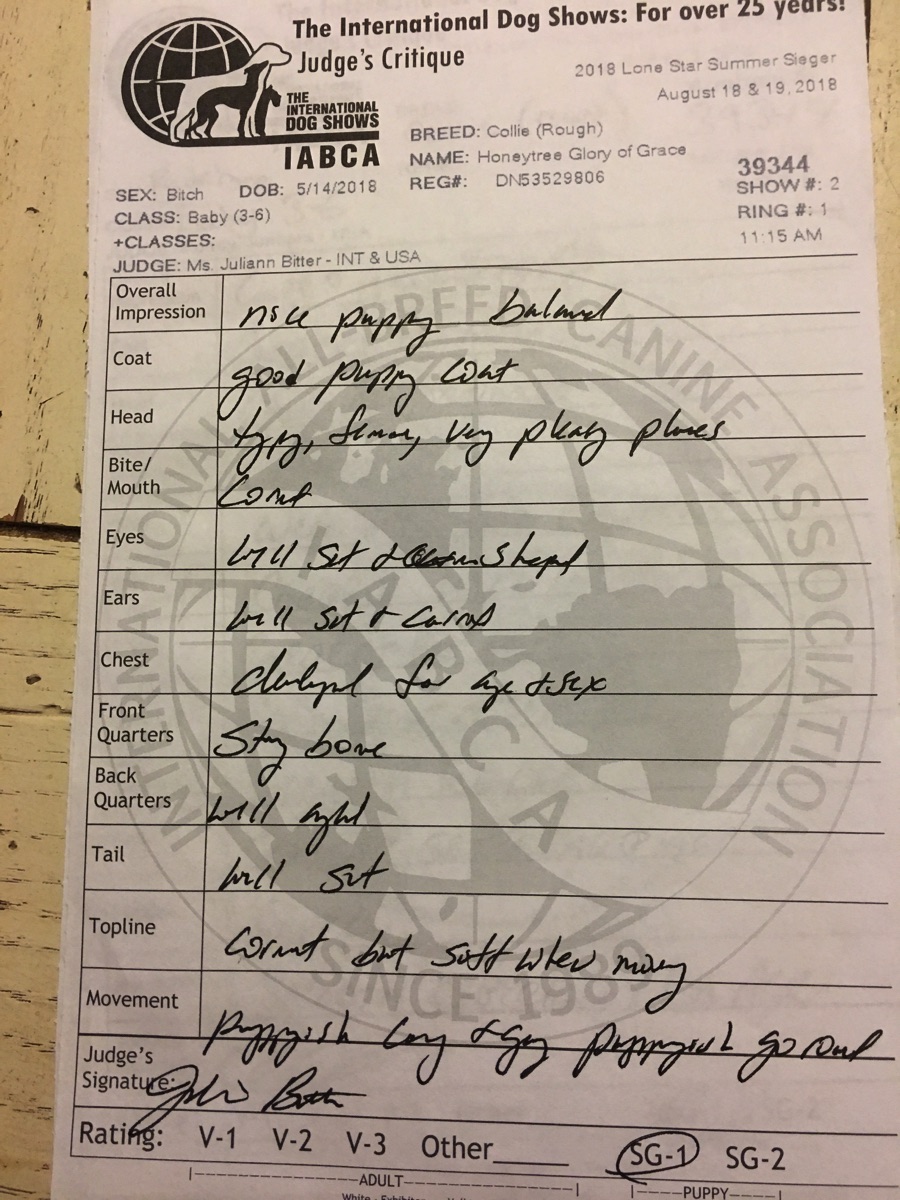 The International Dog Shows: For over 25 years!
Judge's Critique
2018 Lone Star Summer Sieger
August 18 & 19, 2018
THE
INTERNATIONAL
DOG SHOWS
IABCA
BREED: Collie (Rough)
NAME: Honeytree Glory of Grace
REG#: DN53529806
39344
SHOW #: 2
RING #: 1
11:15 AM
SEX: Bitch DOB: 5/14/2018
CLASS: Baby (3-6)
+CLASSES:
JUDGE: Ms. Juliann Bitter - INT & USA
Overall Impression nice puppy balanced
Coat good puppy coat
Head typy, very planes
Bite/Mouth correct
Eyes well set & shaped
Ears well set & carried
Chest developed for age & sex
Front Quarters strong bone
Back Quarters well
Tail well set
Topline correct but soft when moving
Movement puppyish puppyish
Judge's Signature:
Rating: V-1 V-2 V-3 Other SG-1 SG-2
ADULT PUPPY
INTERNATIONAL ALL BREED CANINE ASSOCIATION
IABCA
SINCE 1989